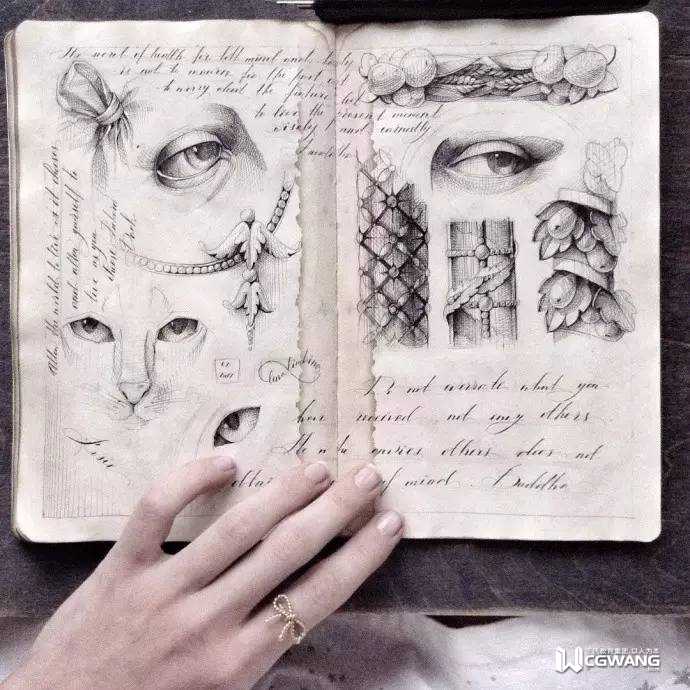 The secret of health for both mind and body
is not to mourn for the past not
to worry about the future but
to live the present moment
wisely and earnestly
Allow the world to live as it chooses
and allow yourself to
live as you
choose
Do not overrate what you
have received nor envy others
He who envies others does not
of mind. Buddha
CGWANG